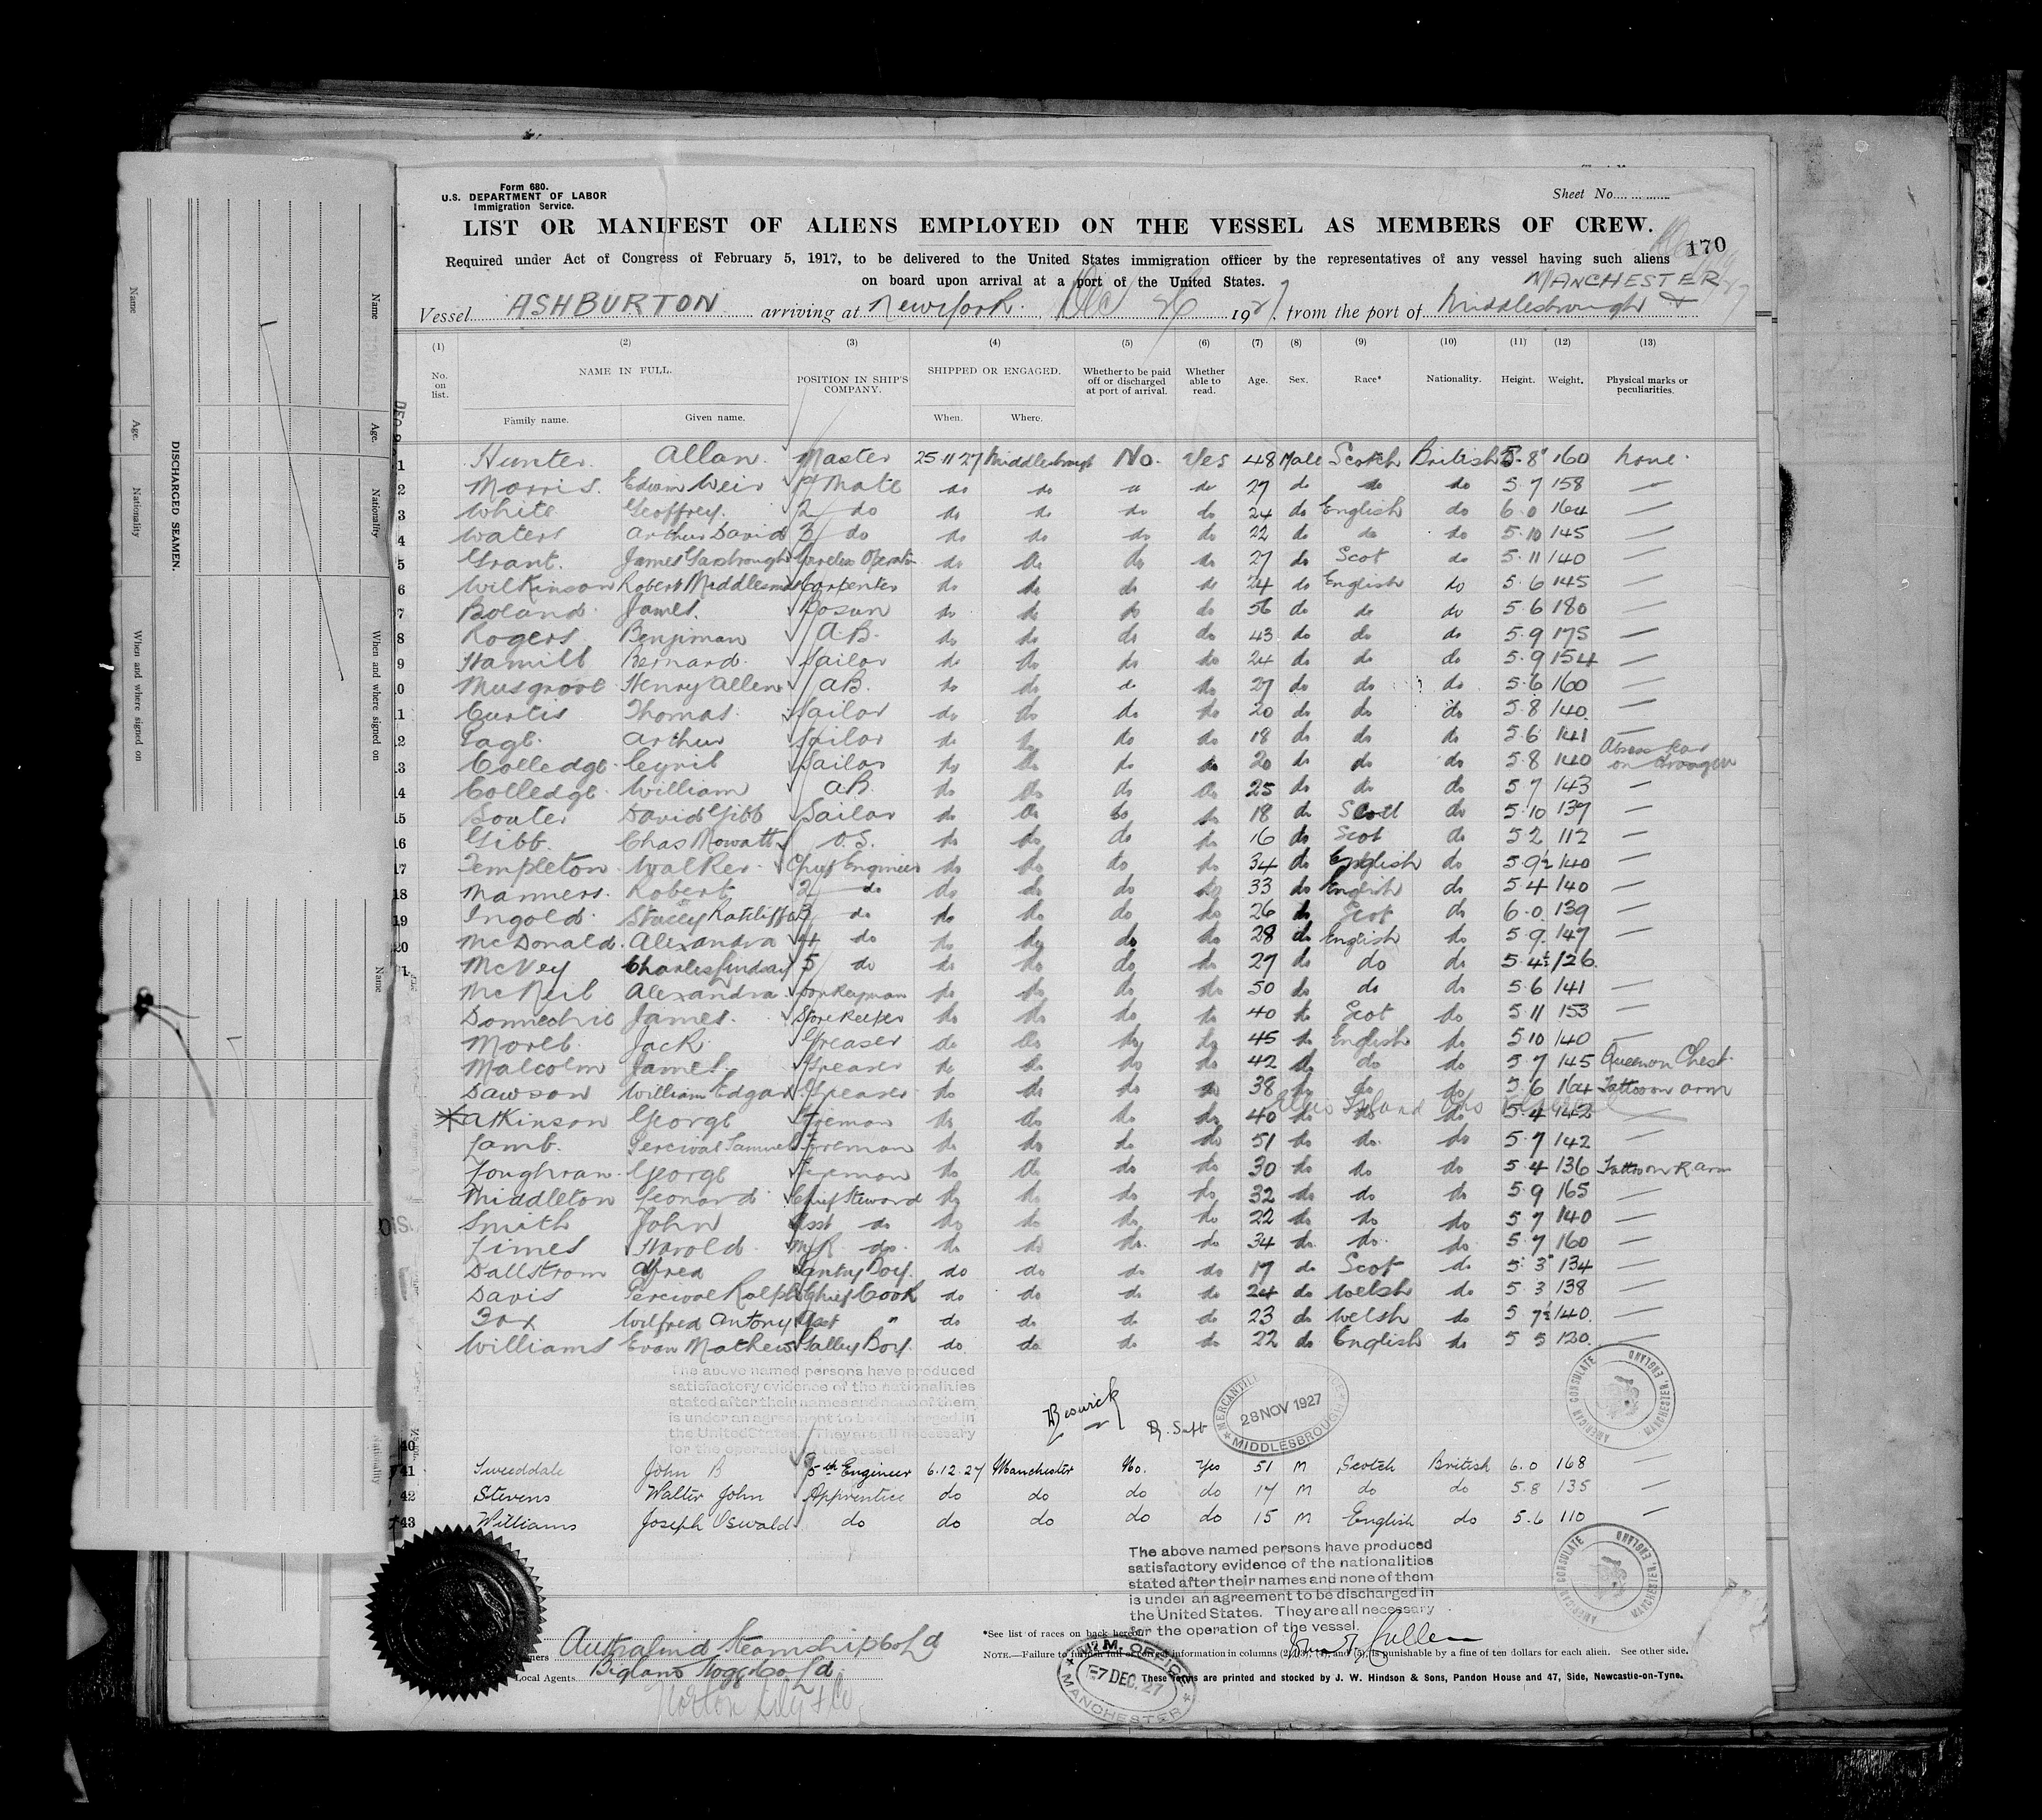 Form 680.
U.S. DEPARTMENT OF LABOR
Immigration Service.
Sheet No.
LIST OR MANIFEST OF ALIENS EMPLOYED ON THE VESSEL AS MEMBERS OF CREW.
170
Required under Act of Congress of February 5, 1917, to be delivered to the United States immigration officer by the representatives of any vessel having such aliens
on board upon arrival at a port of the United States.
MANCHESTER
Vessel ASHBURTON arriving at New York Dec 26 1927, from the port of Middlesbrough &
(1) (2) (3) (4) (5) (6) (7) (8) (9) (10) (11) (12) (13)
No. on list. NAME IN FULL. POSITION IN SHIP'S COMPANY. SHIPPED OR ENGAGED. Whether to be paid off or discharged at port of arrival. Whether able to read. Age. Sex. Race* Nationality. Height. Weight. Physical marks or peculiarities.
Family name. Given name. When. Where.
1 Hunter Allan Master 25 11 27 Middlesbrough No. Yes 48 Male Scotch British 5.8" 160 None
2 Morris Edwin Weir 1st Mate do do do do 27 do do do 5.7 158 —
3 White Geoffrey 2 do do do do do 24 do English do 6.0 164 —
4 Waters Arthur David 3 do do do do do 22 do do do 5.10 145 —
5 Grant James Wireless Operator do do do do 27 do Scot do 5.11 140 —
6 Wilkinson Robert Carpenter do do do do 24 do English do 5.6 145 —
7 Boland James Bosun do do do do 56 do do do 5.6 180 —
8 Rogers Benjiman A.B. do do do do 43 do do do 5.9 175 —
9 Hamill Bernard Sailor do do do do 24 do do do 5.9 154 —
10 Musgrove Henry Allen A.B. do do do do 27 do do do 5.6 160 —
11 Curtis Thomas Sailor do do do do 20 do do do 5.8 140 —
12 Arthur Sailor do do do do 18 do do do 5.6 141 —
13 Colledge Cyril Sailor do do do do 20 do do do 5.8 140 on
14 Colledge William A.B. do do do do 25 do do do 5 7 143 —
15 Souter David Gibb Sailor do do do do 18 do Scot do 5.10 137 —
16 Gibb Chas Mowatt O.S. do do do do 16 do Scot do 5 2 112 —
17 Templeton Walker Chief Engineer do do do do 34 do English do 5 9½ 140 —
18 Manners Robert 2 do do do do do 33 do English do 5 4 140 —
19 Ingold Stacey Ratcliffe 3 do do do do do 26 do Scot do 6.0 139 —
20 McDonald Alexandra 4 do do do do do 28 do English do 5 9 147 —
21 McVey Charles Lindsay 5 do do do do do 27 do do do 5.4½ 126
McNeil Alexandra Donkeyman do do do do 50 do do do 5.6 141 —
Donnechie James Storekeeper do do do do 40 do Scot do 5 11 153 —
Morell Jack Greaser do do do do 45 do English do 5 10 140 —
Malcolm James Greaser do do do do 42 do do do 5 7 145 Queen on Chest
Dawson William Edgar Greaser do do do do 38 do do do 5.6 164 Tattoo on arm
* Atkinson George Fireman do do do do 40 do do do 5 4 142 —
Lamb Percival Samuel Foreman do do do do 51 do do do 5.7 142 —
Loughran George Fireman do do do do 30 do do do 5 4 136 Tattoo on R arm
Middleton Leonard Chief Steward do do do do 32 do do do 5 9 165 —
Smith John Asst do do do do do 22 do do do 5 7 140 —
Limes Harold M/R do do do do do 34 do do do 5.7 160 —
Dallstrom Alfred Pantry Boy do do do do 17 do Scot do 5 3" 134 —
Davis Percival Ralph Chief Cook do do do do 24 do Welsh do 5 3 138 —
Fox Wilfred Antony Asst " do do do do 23 do Welsh do 5 7½ 140 —
Williams Evan Mathew Galley Boy do do do do 22 do English do 5 5 120 —
The above named persons have produced
satisfactory evidence of the nationalities
stated after their names and none of them
is under an agreement to be discharged in
the United States. They are all necessary
for the operation of the vessel
Beswick
Dy. Supt
MERCANTILE
28 NOV 1927
MIDDLESBROUGH
AMERICAN CONSULATE MANCHESTER, ENGLAND
40
41 Tweeddale John B 5th Engineer 6.12.27 Manchester No. Yes 51 M Scotch British 6.0 168 —
42 Stevens Walter John Apprentice do do do do 17 M do do 5.8 135 —
43 Williams Joseph Oswald do do do do do 15 M English do 5.6 110 —
The above named persons have produced
satisfactory evidence of the nationalities
stated after their names and none of them
is under an agreement to be discharged in
the United States. They are all necessary
for the operation of the vessel.
AMERICAN CONSULATE MANCHESTER, ENGLAND
Owners Australind Steamship Co Ld
Local Agents CoLd
Norton Lilly & Co.
*See list of races on back hereof.
NOTE.—Failure to furnish full or correct information in columns (2), (3), (4), and (5), is punishable by a fine of ten dollars for each alien. See other side.
M.M. OFFICE
7 DEC. 27
MANCHESTER
These Forms are printed and stocked by J. W. Hindson & Sons, Pandon House and 47, Side, Newcastle-on-Tyne.
DISCHARGED SEAMEN.
Name
Age.
Nationality
When and where signed on
Name
Age.
Nationality
When and where signed on
Name